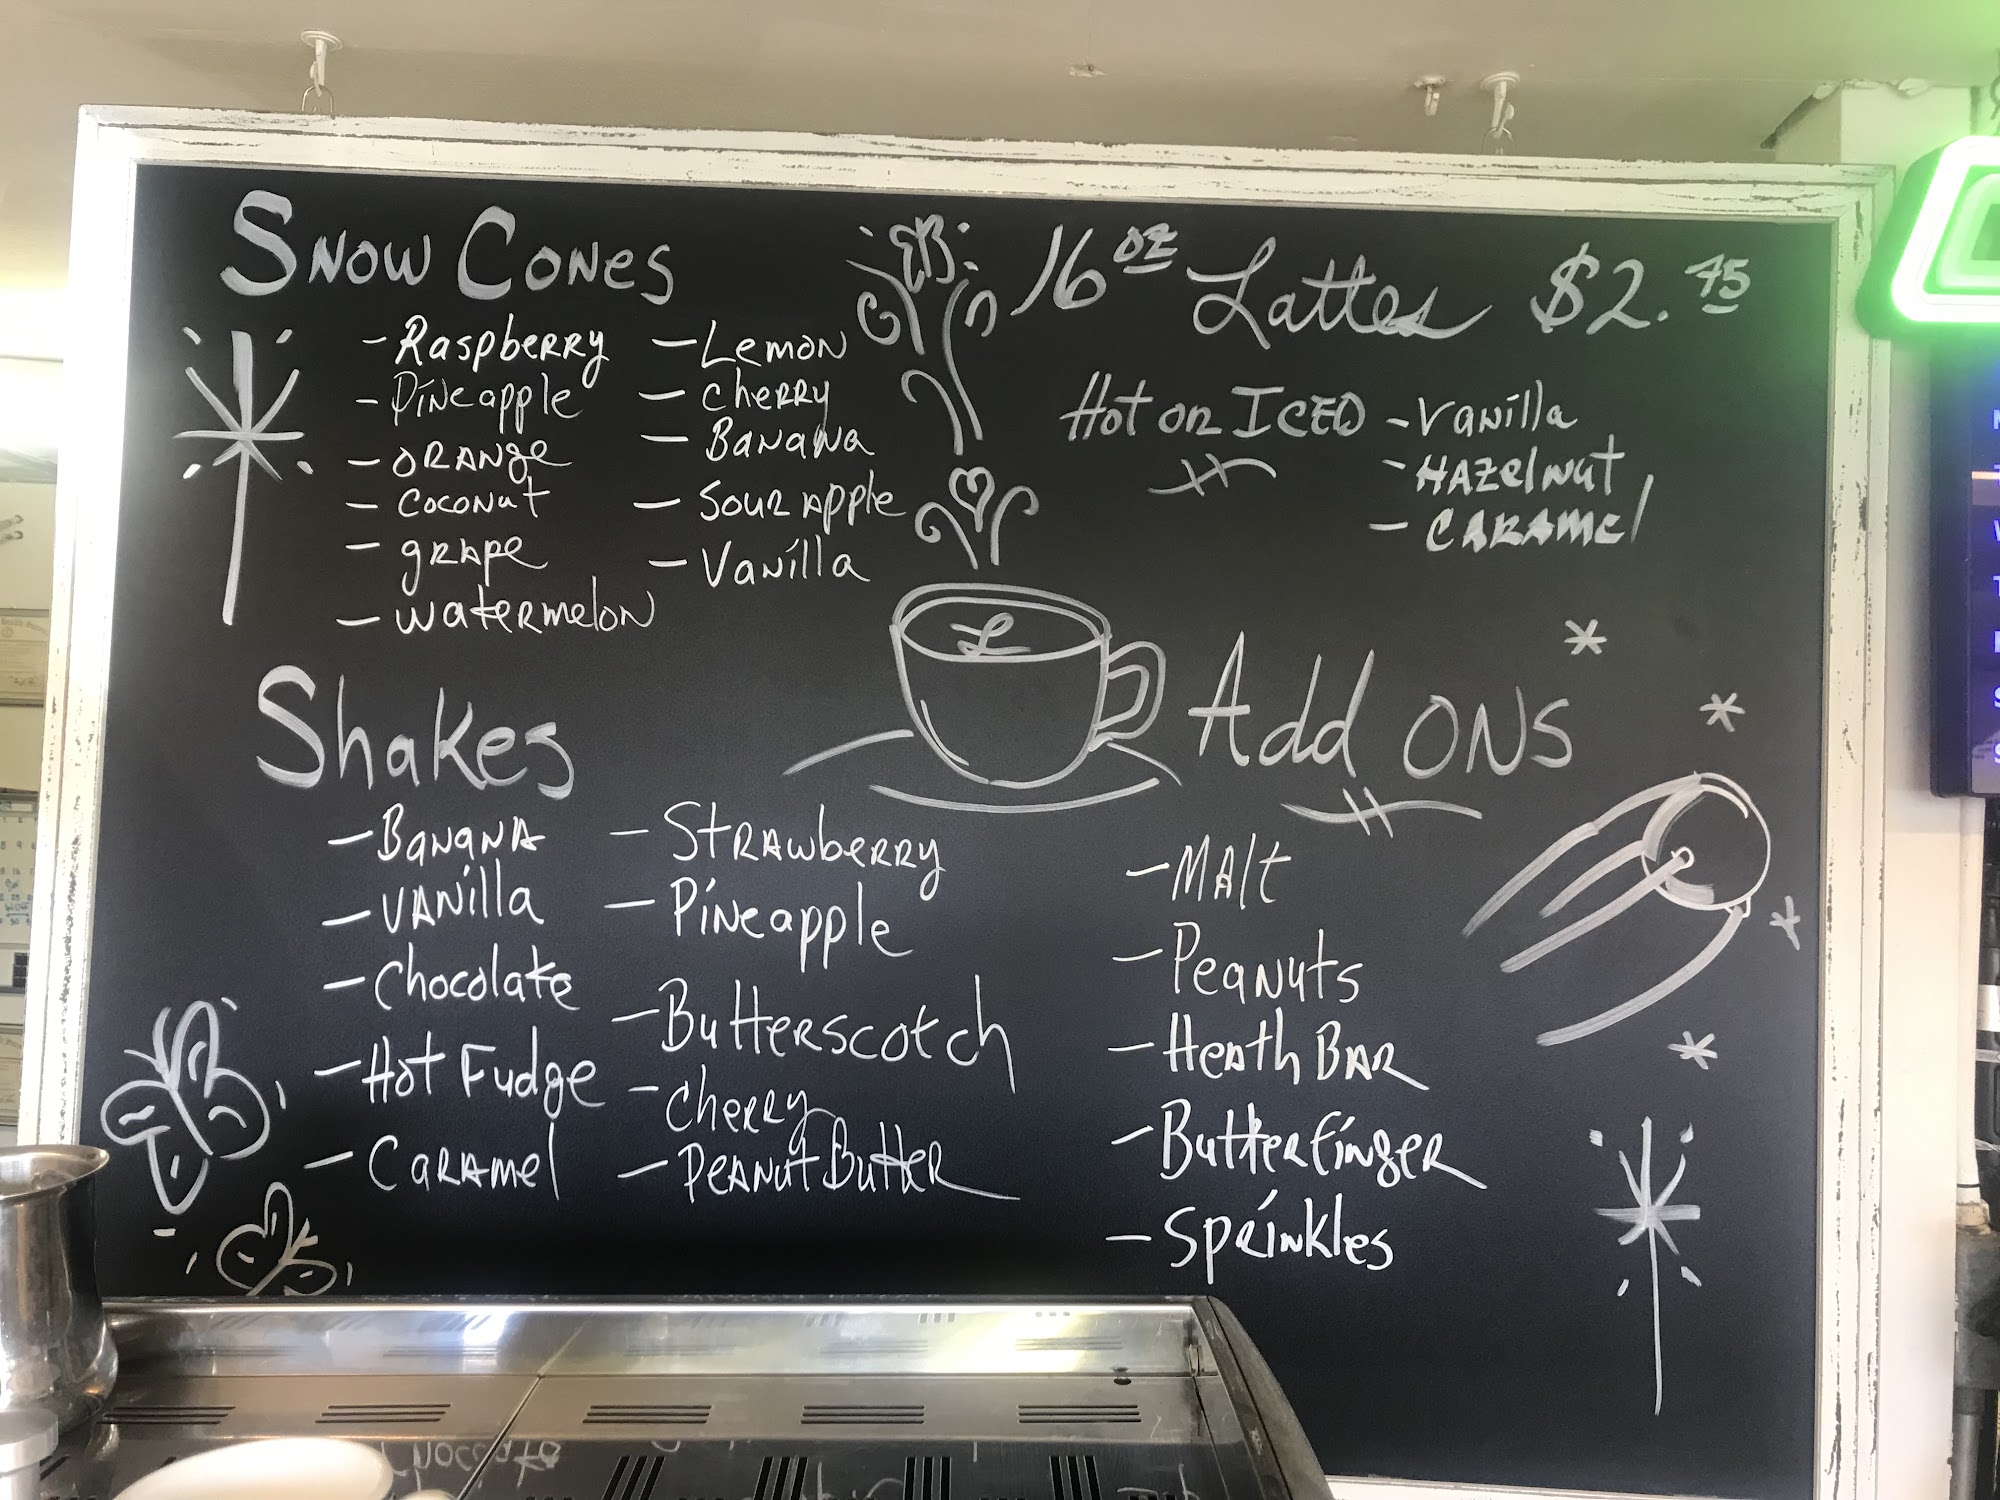 Snow Cones
- Raspberry
- Pineapple
- Orange
- Coconut
- grape
- watermelon
- Lemon
- Cherry
- Banana
- Sour Apple
- Vanilla
16 oz Lattes $2.75
Hot or ICED
- Vanilla
- Hazelnut
- Caramel
L
Shakes
- Banana
- Vanilla
- Chocolate
- Hot Fudge
- Caramel
- Strawberry
- Pineapple
- Butterscotch
- Cherry
- Peanut Butter
Add ONS
- Malt
- Peanuts
- Heath Bar
- Butterfinger
- Sprinkles